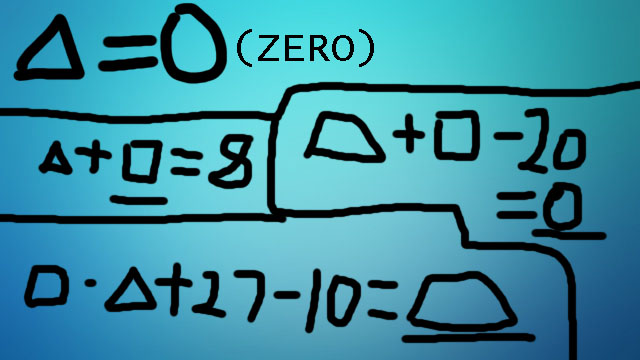 △=0 (ZERO)
△+□=8
⏢+□-20
=0
□·△+27-10=⏢